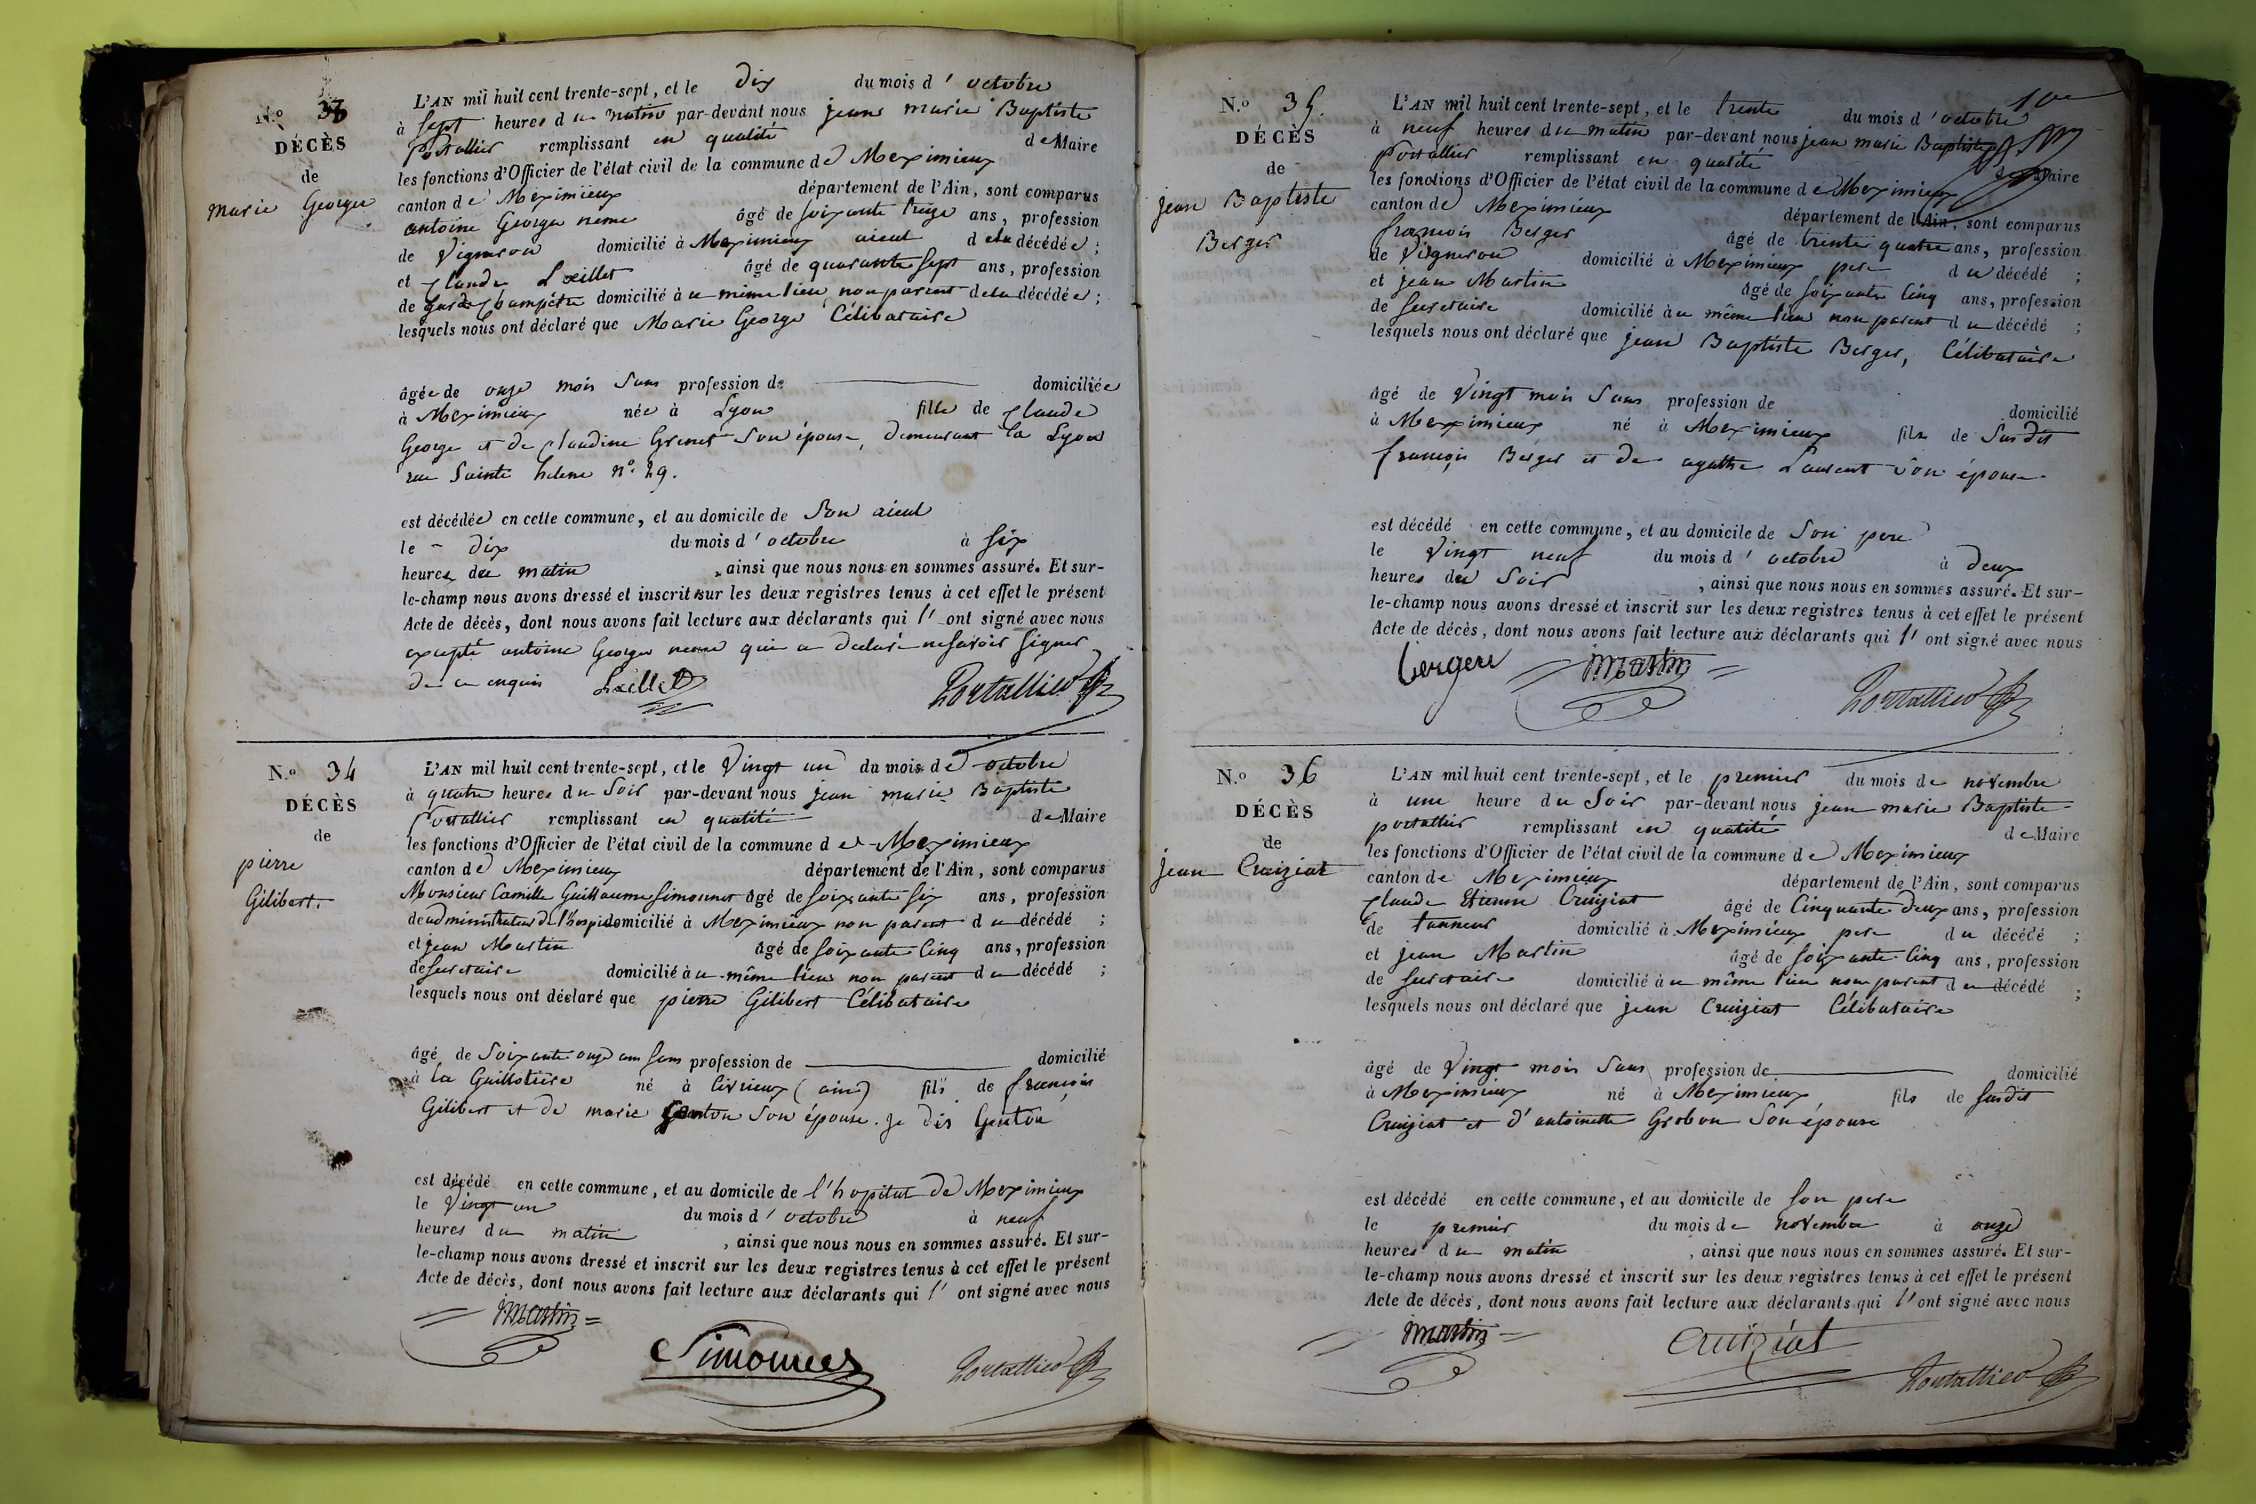 N.º 33
DÉCÈS
de
Marie George
L'AN mil huit cent trente-sept, et le dix du mois d'octobre
à sept heures du matin par-devant nous jean marie Baptiste
Portallier remplissant en qualité de Maire
les fonctions d'Officier de l'état civil de la commune de Meximieux
canton de Meximieux département de l'Ain, sont comparus
antoine George âgé de soixante treize ans, profession
de Vigneron domicilié à Meximieux aieul de la décédée ;
et Claude Lxillet âgé de quarante sept ans, profession
de garde Champêtre domicilié au même lieu non parent de la décédée ;
lesquels nous ont déclaré que Marie George Célibataire
âgée de onze mois Sans profession de domiciliée
à Meximieux née à Lyon fille de Claude
George et de Claudine Grenet Son épouse, demeurant à Lyon
rue Sainte helene n.º 29.
est décédée en cette commune, et au domicile de Son aieul
le dix du mois d'octobre à six
heures du matin , ainsi que nous nous en sommes assuré. Et sur-
le-champ nous avons dressé et inscrit sur les deux registres tenus à cet effet le présent
Acte de décès, dont nous avons fait lecture aux déclarants qui l'ont signé avec nous
excepté antoine George qui a declaré ne savoir signer
de ce enquis Lxillet Portallier
N.º 34
DÉCÈS
de
pierre
Gilibert.
L'AN mil huit cent trente-sept, et le Vingt un du mois de octobre
à quatre heures du Soir par-devant nous jean marie Baptiste
Portallier remplissant en qualité de Maire
les fonctions d'Officier de l'état civil de la commune de Meximieux
canton de Meximieux département de l'Ain, sont comparus
Monsieur Camille Guillaume Simonnet âgé de soixante six ans, profession
de administrateur de l'hospice domicilié à Meximieux non parent du décédé ;
et jean Martin âgé de soixante Cinq ans, profession
de Secretaire domicilié au même lieu non parent du décédé ;
lesquels nous ont déclaré que pierre Gilibert Célibataire
âgé de Soixante onze ans sans profession de domicilié
à la Guillotière né à Civrieux (ain) fils de françois
Gilibert et de marie Genton Son épouse. je dis Genton
est décédé en cette commune, et au domicile de l'hopital de Meximieux
le Vingt un du mois d'octobre à neuf
heures du matin , ainsi que nous nous en sommes assuré. Et sur-
le-champ nous avons dressé et inscrit sur les deux registres tenus à cet effet le présent
Acte de décès, dont nous avons fait lecture aux déclarants qui l'ont signé avec nous
Martin
Simonnet Portallier
N.º 35.
DÉCÈS
de
jean Baptiste
Berger
L'AN mil huit cent trente-sept, et le trente du mois d'octobre
à neuf heures du matin par-devant nous jean marie Baptiste
portallier remplissant en qualité de Maire
les fonctions d'Officier de l'état civil de la commune de Meximieux
canton de Meximieux département de l'Ain, sont comparus
françois Berger âgé de trente quatre ans, profession
de Vigneron domicilié à Meximieux pere du décédé ;
et jean Martin âgé de soixante Cinq ans, profession
de Secretaire domicilié au même lieu non parent du décédé ;
lesquels nous ont déclaré que jean Baptiste Berger, Célibataire
âgé de Vingt mois Sans profession de domicilié
à Meximieux né à Meximieux fils de Susdit
françois Berger et de agathe Laurent Son épouse
est décédé en cette commune, et au domicile de Son pere
le Vingt neuf du mois d'octobre à deux
heures du Soir , ainsi que nous nous en sommes assuré. Et sur-
le-champ nous avons dressé et inscrit sur les deux registres tenus à cet effet le présent
Acte de décès, dont nous avons fait lecture aux déclarants qui l'ont signé avec nous
bergere Martin
Portallier
N.º 36
DÉCÈS
de
jean Cruiziat
L'AN mil huit cent trente-sept, et le premier du mois de novembre
à une heure du Soir par-devant nous jean marie Baptiste
portallier remplissant en qualité de Maire
les fonctions d'Officier de l'état civil de la commune de Meximieux
canton de Meximieux département de l'Ain, sont comparus
Claude Etienne Cruiziat âgé de Cinquante deux ans, profession
de tanneur domicilié à Meximieux pere du décédé ;
et jean Martin âgé de soixante Cinq ans, profession
de Secretaire domicilié au même lieu non parent du décédé ;
lesquels nous ont déclaré que jean Cruiziat Célibataire
âgé de Vingt mois Sans profession de domicilié
à Meximieux né à Meximieux fils de susdit
Cruiziat et d'antoinette Grobon Son épouse
est décédé en cette commune, et au domicile de Son pere
le premier du mois de novembre à onze
heures du matin , ainsi que nous nous en sommes assuré. Et sur-
le-champ nous avons dressé et inscrit sur les deux registres tenus à cet effet le présent
Acte de décès, dont nous avons fait lecture aux déclarants qui l'ont signé avec nous
Martin Cruiziat
Portallier